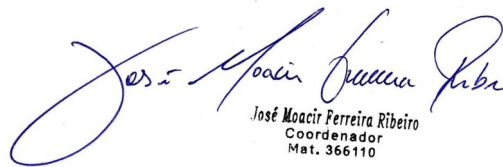 José Moacir Ferreira Ribe
José Moacir Ferreira Ribeiro
Coordenador
Mat. 366110